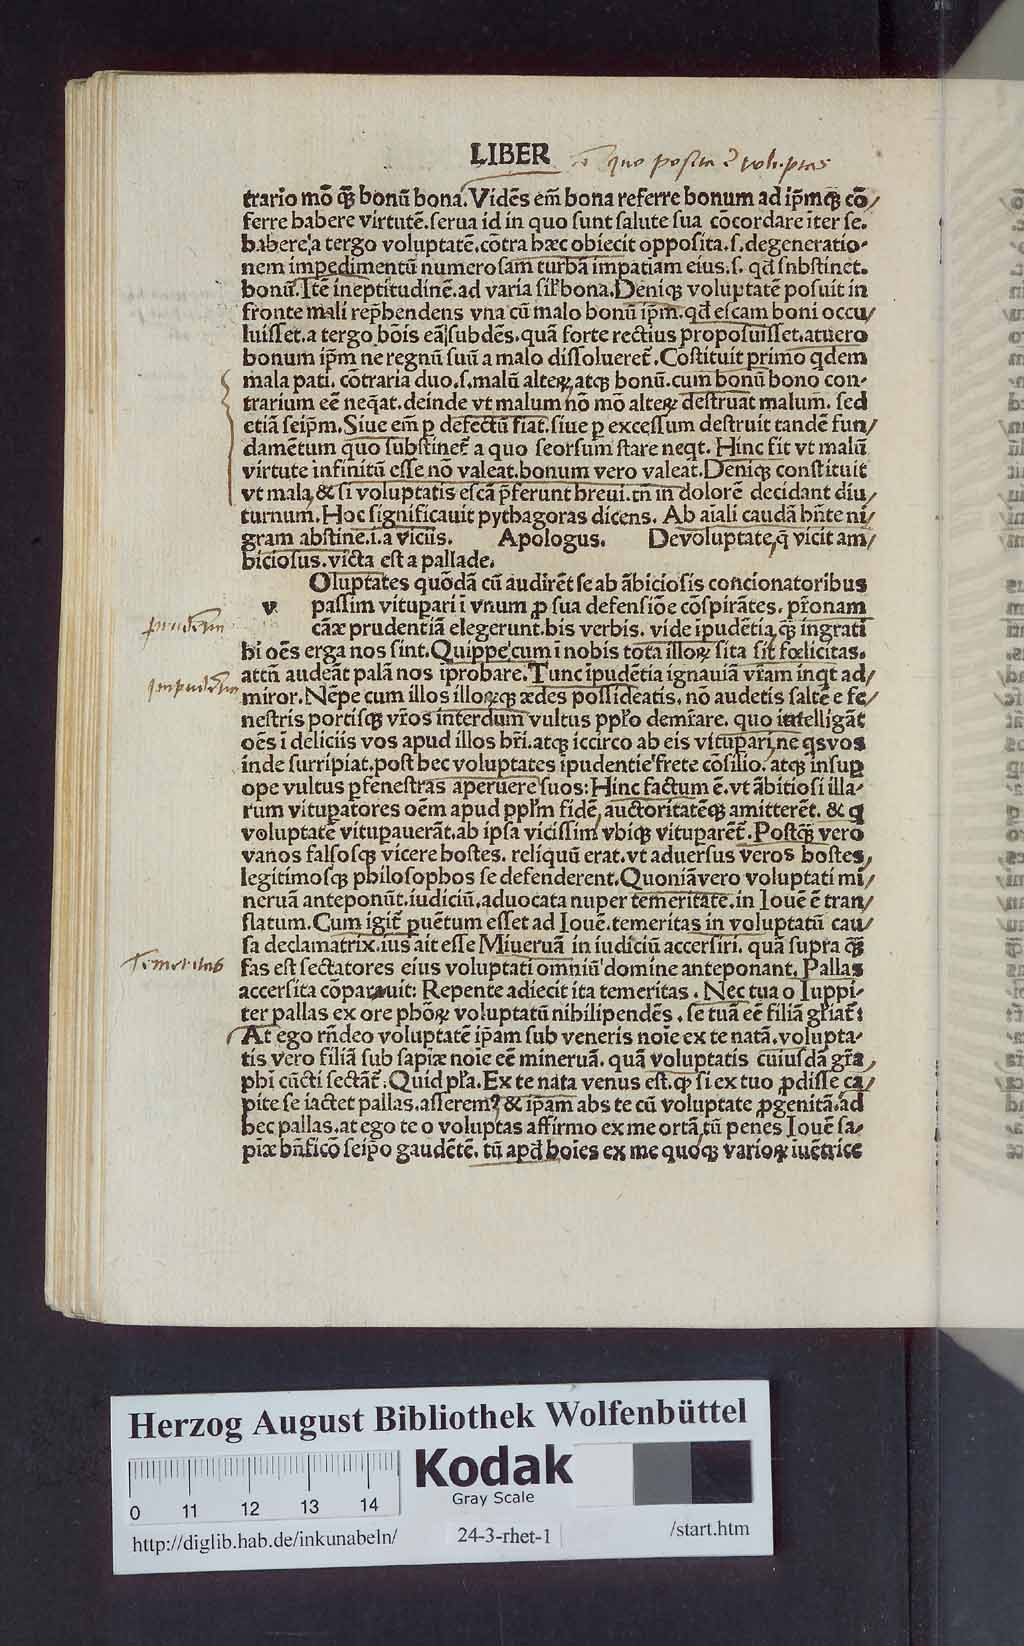 LIBER quo posita ē voluptas
trario mō qꝫ̄ bonū bona. Vidēs em̄ bona referre bonum ad ip̄mqꝫ cō/
ferre habere virtutē. serua id in quo sunt salute sua cōcordare iter se.
habere a tergo voluptatē. cōtra hæc obiecit opposita. s. degeneratio-
nem impedimentū numerosam turbā impatiam eius. s. qd̄ snbstinet.
bonū. Itē ineptitudinē. ad varia sil̉ bona. Deniqꝫ voluptatē posuit in
fronte mali rep̄hendens vna cū malo bonū ip̄m. qd̄ escam boni occu/
luisset. a tergo bōis eā subdēs. quā forte rectius proposuisset. at uero
bonum ip̄m ne regnū suū a malo dissolueret̄. Cōstituit primo qdem
mala pati. cōtraria duo. s. malū alteꝝ. atqꝫ bonū. cum bonū bono con-
trarium eē neq̄at. deinde vt malum nō mō alteꝝ destruat malum. sed
etiā seip̄m. Siue em̄ ꝑ defectū fiat. siue ꝑ excessum destruit tandē fun/
damētum quo substinet̄ a quo seorsum stare neqt. Hinc fit vt malū
virtute infinitū esse nō valeat. bonum vero valeat. Deniqꝫ constituit
vt mala & si voluptatis escā p̄ferunt breui. tn̄ in dolorē decidant diu/
turnum. Hoc significauit pythagoras dicens. Ab aīali caudā hn̄te ni/
gram abstine. i. a viciis. Apologus. De voluptate, q̄ vicit am/
biciosus. victa est a pallade.
Oluptates quōdā cū audirēt se ab ābiciosis concionatoribus
v. passim vituꝑari ī vnum ꝓ sua defensiōe cōspirātes. pr̄onam
prudētia cāæ prudentiā elegerunt. his verbis. vide ipudētia qꝫ̄ ingrati
hi oēs erga nos sint. Quippe cum ī nobis tota illoꝝ sita sit fœlicitas.
impudētia attn̄ audeāt palā nos īprobare. Tunc īpudētia ignauiā vr̄am inqt ad/
miror. Nēpe cum illos illoꝝqꝫ ædes possideatis. nō audetis saltē e fe/
nestris portisqꝫ vr̄os interdum vultus pp̉lo demr̄are. quo intelligāt
oēs ī deliciis vos apud illos br̄i. atqꝫ iccirco ab eis vituꝑari, ne qs vos
inde surripiat. post hec voluptates īpudentie frete cōsilio. atqꝫ insuꝑ
ope vultus ꝑ fenestras aperuere suos: Hinc factum ē. vt ābitiosi illa-
rum vituꝑatores oēm apud pplm̄ fidē, auctoritatēqꝫ amitterēt. & q
voluptatē vituꝑauerāt. ab ipsa vicissim vbiqꝫ vituꝑarēt̄. Postqꝫ̄ vero
vanos falsosqꝫ vicere hostes. reliquū erat. vt aduersus veros hostes,
legitimosqꝫ philosophos se defenderent. Quoniā vero voluptati mi/
neruā anteponūt. iudiciū. aduocata nuper temeritate. in Iouē ē tran/
slatum. Cum igit̄ ꝑuētum esset ad Iouē. temeritas in voluptatū cau/
sa declamatrix. ius ait esse Miueruā in iudiciū accersiri. quā supra qꝫ̄
Temeritas fas est sectatores eius voluptati omniū domine anteponant. Pallas
accersita cōparauit: Repente adiecit ita temeritas. Nec tua o Iuppi-
ter pallas ex ore phōꝝ voluptatū nihilipendēs. se tuā eē filiā gl̉iat̄:
At ego rn̄deo voluptatē ip̄am sub veneris noīe ex te natā. volupta-
tis vero filiā sub sapiæ noīe eē mineruā. quā voluptatis cuiusdā gr̄a,
phi cūcti sectāt̄. Quid pl̉a. Ex te nata venus est. ꝙ si ex tuo ꝓdisse ca/
pite se iactet pallas. asserem? & ip̄am abs te cū voluptate ꝓgenitā. ad
hec pallas. at ego te o voluptas affirmo ex me ortā, tū penes Iouē sa-
piæ bn̄ficō seip̄o gaudētē. tū apd̄ hoīes ex me quoqꝫ varioꝝ iuētrice
Herzog August Bibliothek Wolfenbüttel
0 11 12 13 14
Kodak
Gray Scale
http://diglib.hab.de/inkunabeln/ 24-3-rhet-1 /start.htm